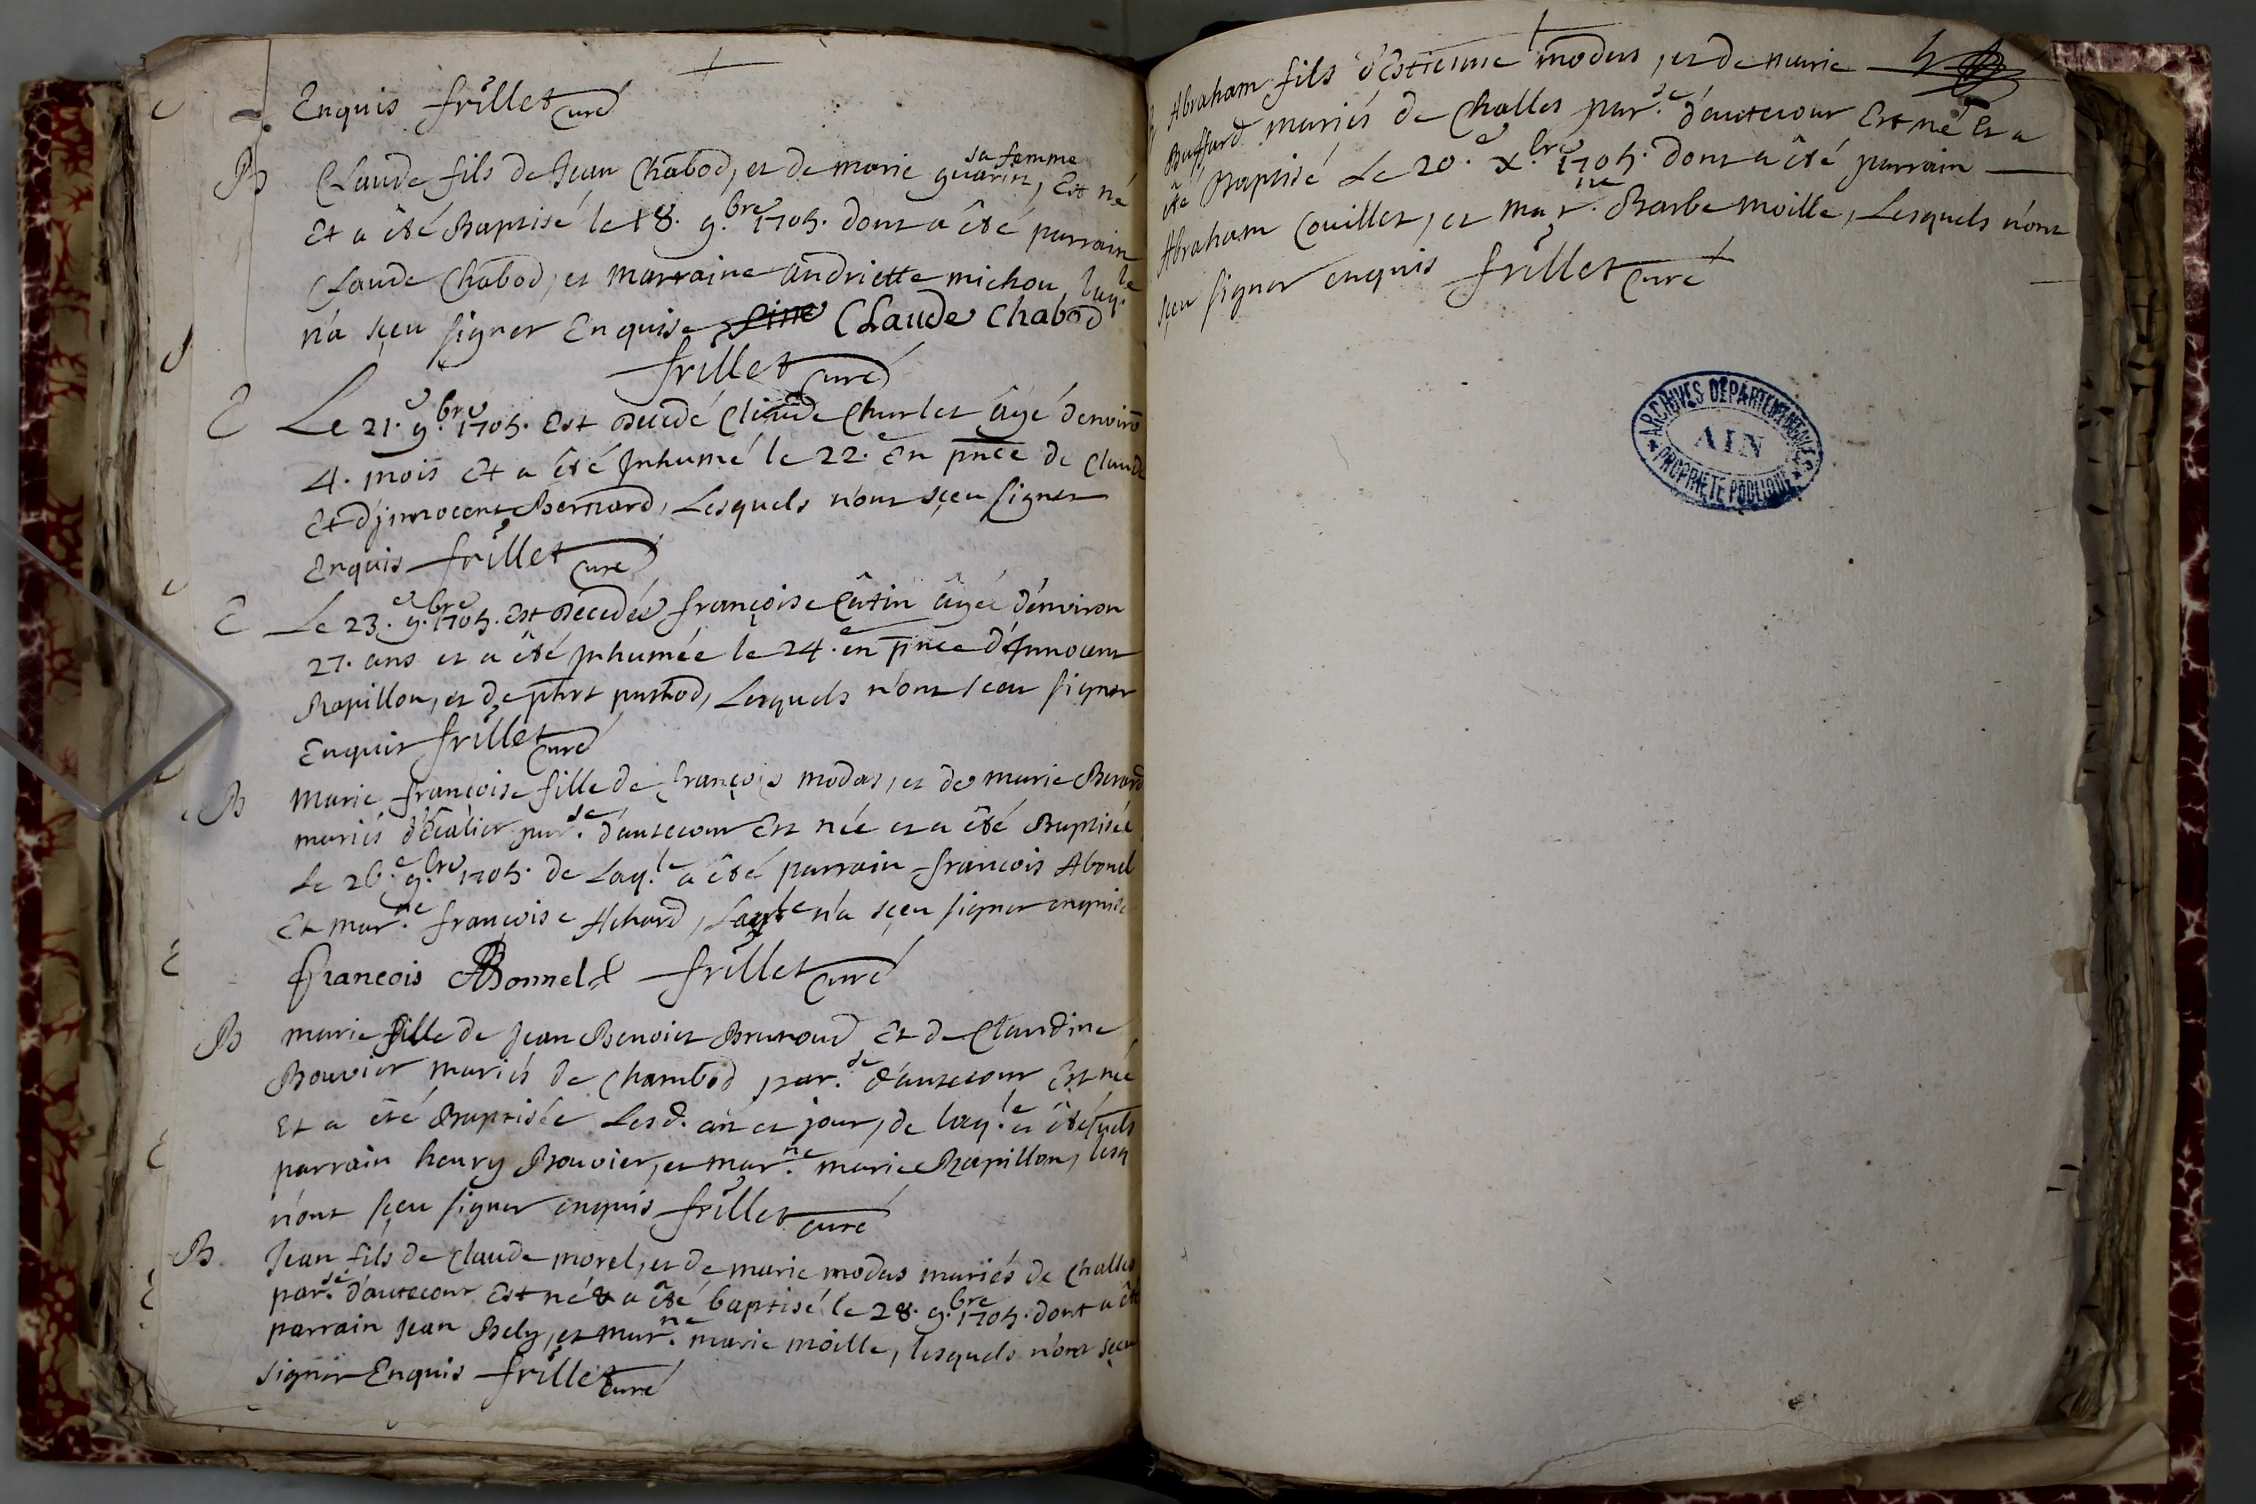 Enquis frillet curé
B Claude fils de Jean Chabod, et de marie guarin, sa femme Est né
Et a êté Baptisé le 18. 9.bre 1705. dont a êté parrain
Claude Chabod, et marraine andriette michon, laq.le
n'a sçeu signer Enquise Claude Chabod
frillet curé
E Le 21.e 9.bre 1705. Est decedé Claude Charlet âgé d'enviro
4. mois Et a êté Inhumé le 22.e En pnce de Claude
Et d'jnnocent Bernard, Lesquels n'ont sçeu signer
Enquis frillet curé
E Le 23.e 9.bre 1705. Est decedée françoise Câtin âgée d'environ
27. ans et a êté Inhumée le 24.e en pnce d'Innocent
Rapillon, et de phrt puthod, Lesquels n'ont sceu signer
Enquis frillet curé
B Marie françoise fille de françois modas, et de marie Berard
mariés d'Ecalier par.se d'autecour Est née et a êté Baptisée
Le 26.e 9.bre 1705. de Laq.le a êté parrain francois Abonel
Et mar.ne françoise Achard, Laqle n'a sçeu signer enquise
francois ABonnel frillet curé
B marie fille de Jean Benoict Brunoud Et de Claudine
Bouvier mariés de Chambod par.se d'autecour Est née
Et a été Baptisée Lesd. an et jour, de laq.le a êté
parrain henry Bouvier, et mar.ne marie Rapillon, lesquels
n'ont sçeu signer enquis frillet curé
B Jean fils de Claude morel, et de marie modas mariés de Challes
par.se d'autecour Est né & a êté baptisé le 28. 9.bre 1705. dont a êté
parrain Jean Bely, et mar.ne marie moille, lesquels n'ont sçeu
signer Enquis frillet curé
Abraham fils d'Estienne modas, et de marie
Buffard mariés de Challes par.se d'autecour Est né Et a
êté Baptisé Le 20.e X.bre 1705. dont a êté parrain
Abraham Couillet, et mar.ne Barbe moille, Lesquels n'ont
sçeu signer enquis frillet curé
ARCHIVES DÉPARTEMENTALES
AIN
PROPRIÉTÉ PUBLIQUE